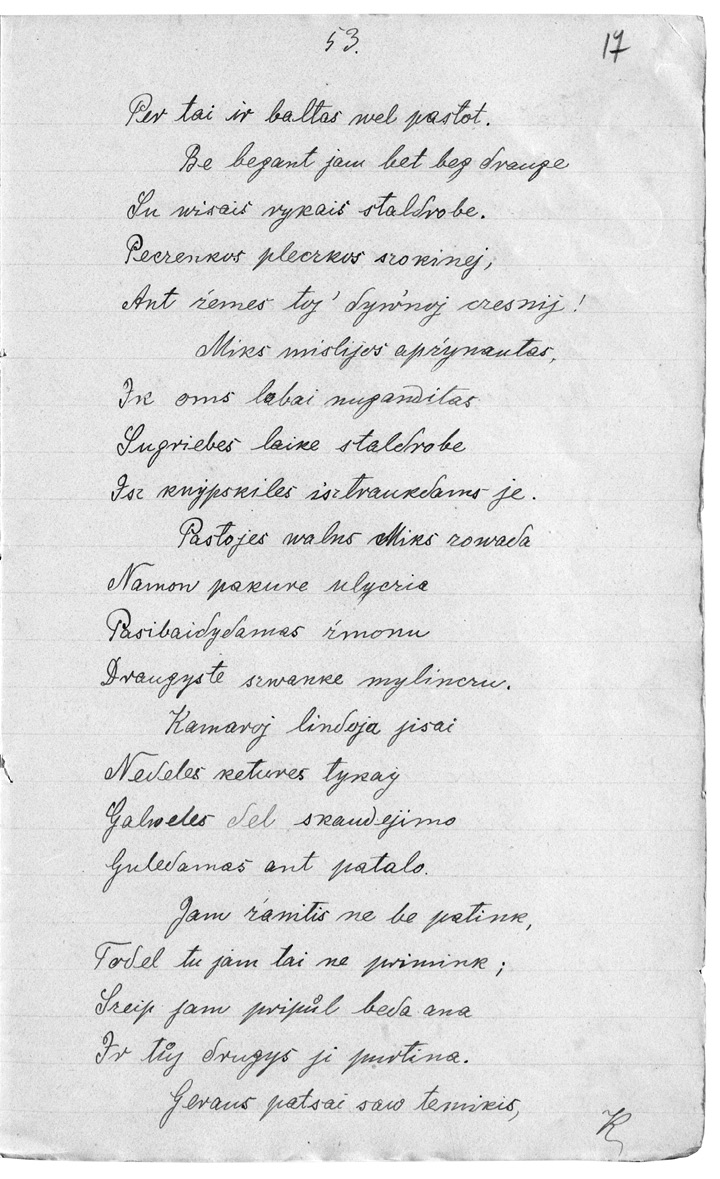 53.
17
Per tai ir baltas wel pastot.
Be begant jam bet beg drauge
Su wisais rykais staldrobe.
Peczenkos pleczkos szokinej,
Ant żemes toj' dyw'noj czesnij!
Miks mislijos apżynautas,
Ik oms labai nuganditas
Sugriebes laike staldrobe
Isz knypskiles isztraukdams je.
Pastojes walns Miks rowada
Namon pakure ulyczia
Pasibaidydamas żmonu
Draugyste szwanke mylinczu.
Kamaroj lindoja jisai
Nedeles ketures tykay
Galweles del skaudejimo
Guledamas ant patalo.
Jam żanitis ne be patink,
Todel tu jam tai ne primink;
Szeip jam pripůl beda ana
Ir tůj drugys ji purtina.
Geraus patsai saw temikis,
K